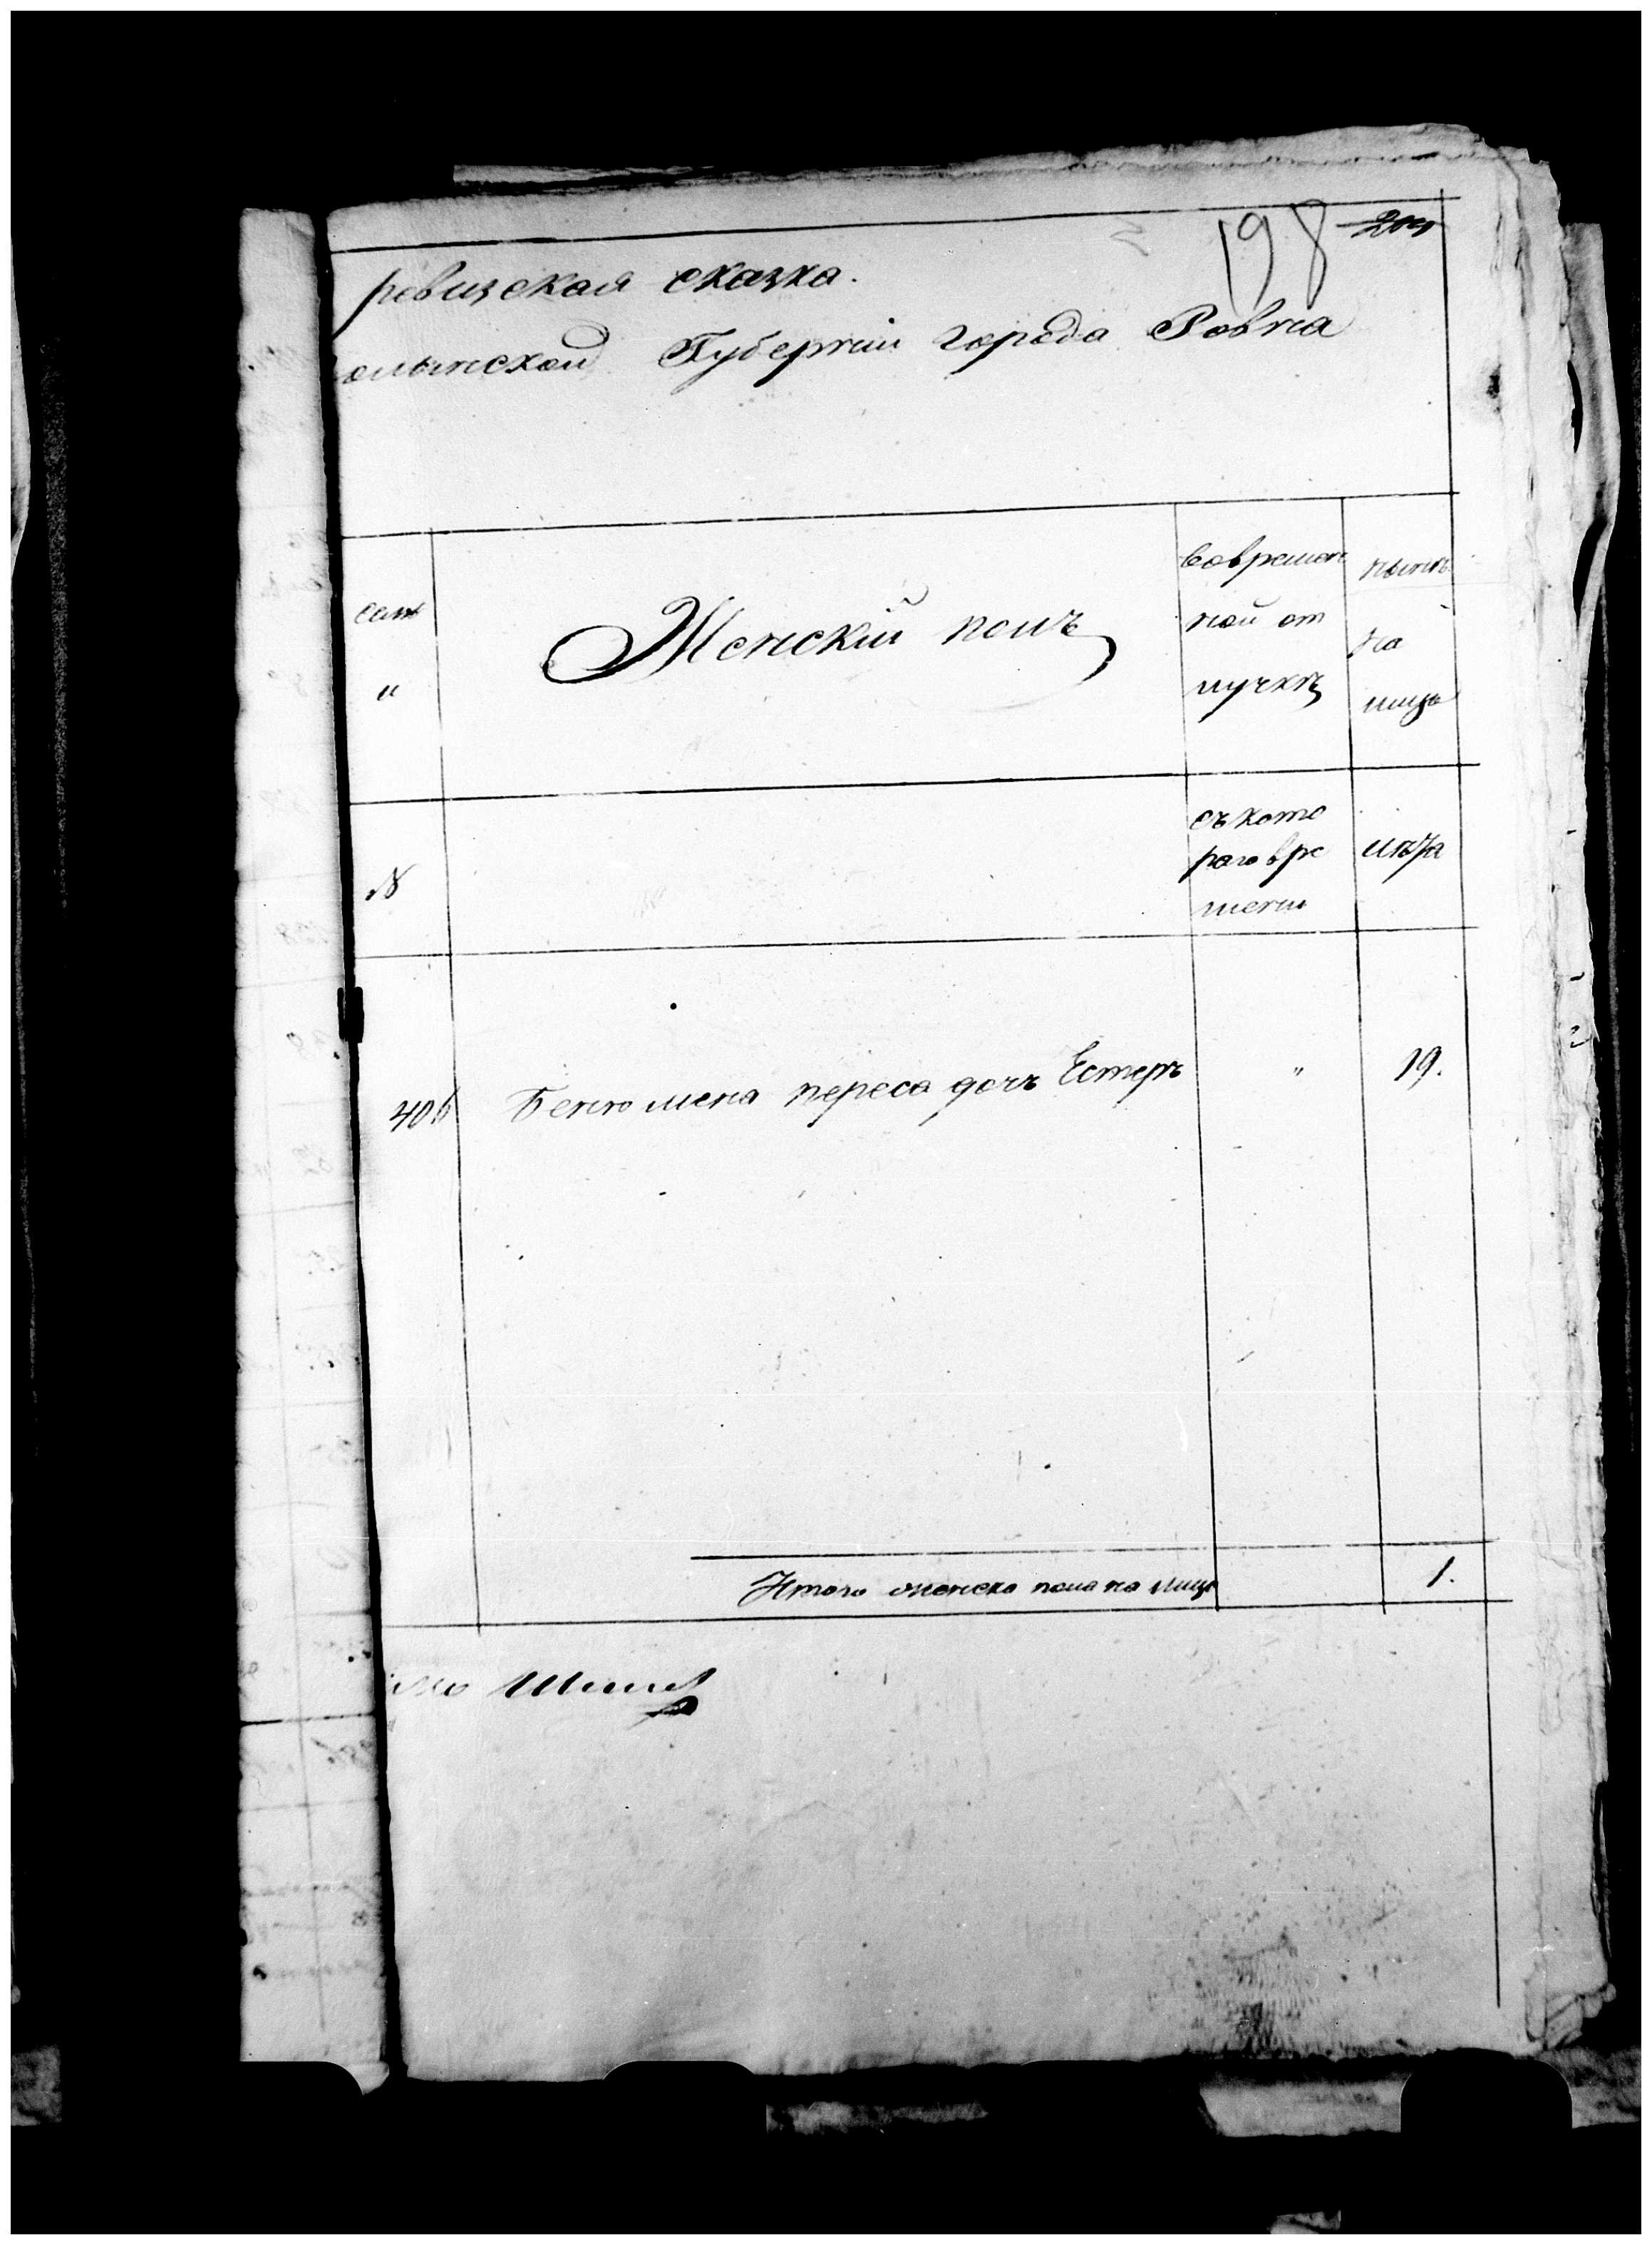 198 204
ревизская сказка.
олынской Губерніи города Ровна
сем
"
Женскій полъ
Во времен
ной от
лучкѣ
нынѣ
на
лицо
№
съ кото
раго вре
мени
лѣта
406 Бенюмена переса дочь Естеръ " 19.
Итого женско пола на лицо 1.